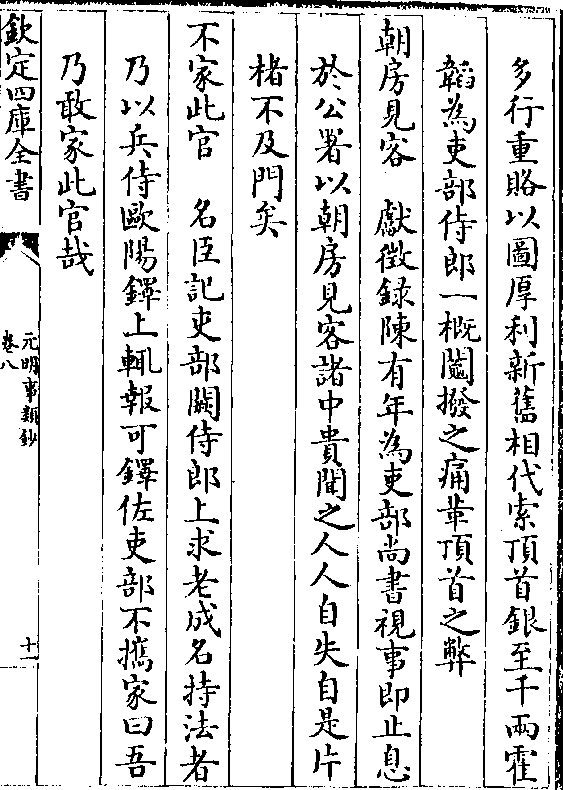 多行重賂以圖厚利新舊相代索頂首銀至千兩霍
韜為吏部侍郎一概鬮撥之痛革頂首之弊
朝房見客　獻徵録陳有年為吏部尚書視事即止息
於公署以朝房見客諸中貴聞之人人自失自是片
楮不及門矣
不家此官　名臣記吏部闕侍郎上求老成名持法者
乃以兵侍歐陽鐸上輒報可鐸佐吏部不攜家曰吾
乃敢家此官哉
欽定四庫全書
元明事類鈔
卷八
十一